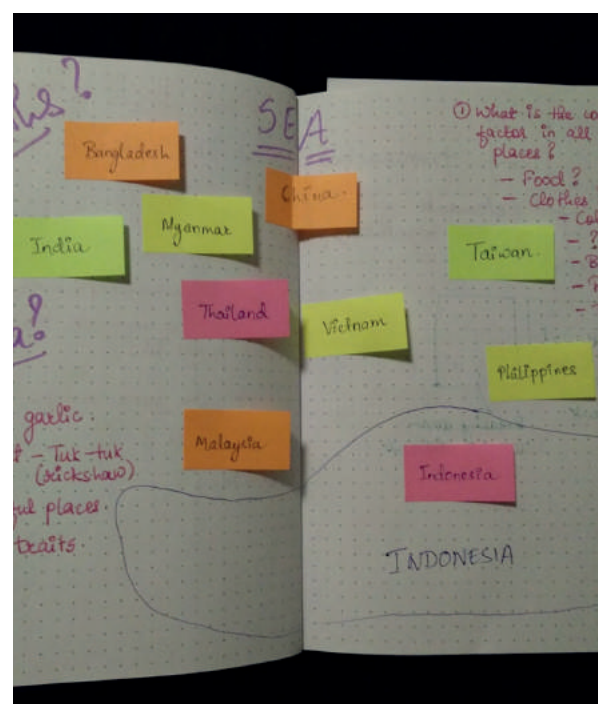 SEA
Bangladesh
China.
Myanmar
India
Taiwan.
Thailand
Vietnam
Philippines
Malaysia
Indonesia
INDONESIA
garlic.
- Tuk-tuk
(rickshaw)
places.
traits.
① What is the
factor in all
places?
- Food?
- Clothes
- ?